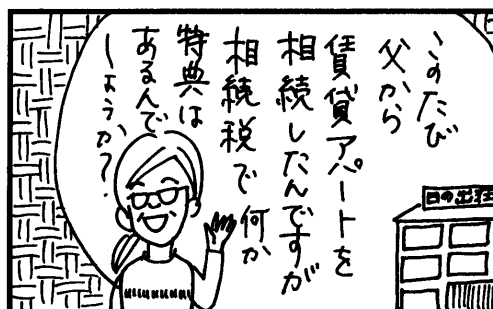 このたび
父から
賃貸アパートを
相続したんですが
相続税で何か
特典は
あるんで
しょうか?
日の出荘